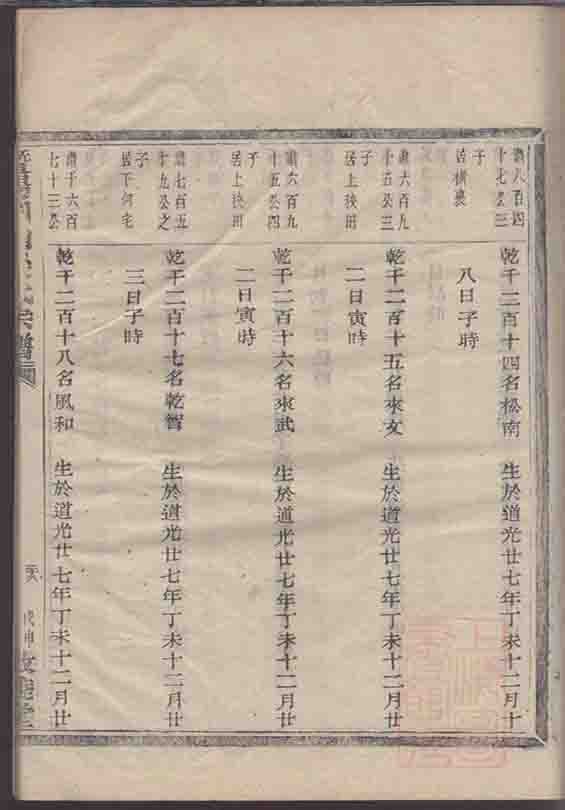 八百四
十七公三
子
居橫裏
乾千二百十四名松南　生於道光廿七年丁未十二月十
八日子時
六百九
十五公三
子
居上挾田
乾千二百十五名來文　生於道光廿七年丁未十二月廿
二日寅時
六百九
十五公四
子
居上挾田
乾千二百十六名來武　生於道光廿七年丁未十二月廿
二日寅時
七百五
十九公之
子
居下何宅
乾千二百十七名乾智　生於道光廿七年丁未十二月廿
三日子時
千六百
七十三公
乾千二百十八名風和　生於道光廿七年丁未十二月廿
宗譜
戊申